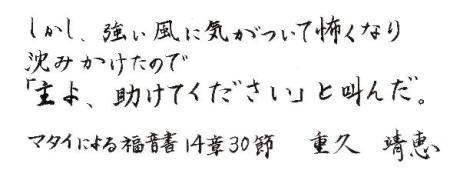 しかし、強い風に気がついて怖くなり
沈みかけたので
「主よ、助けてください」と叫んだ。
マタイによる福音書14章30節 重久 靖恵